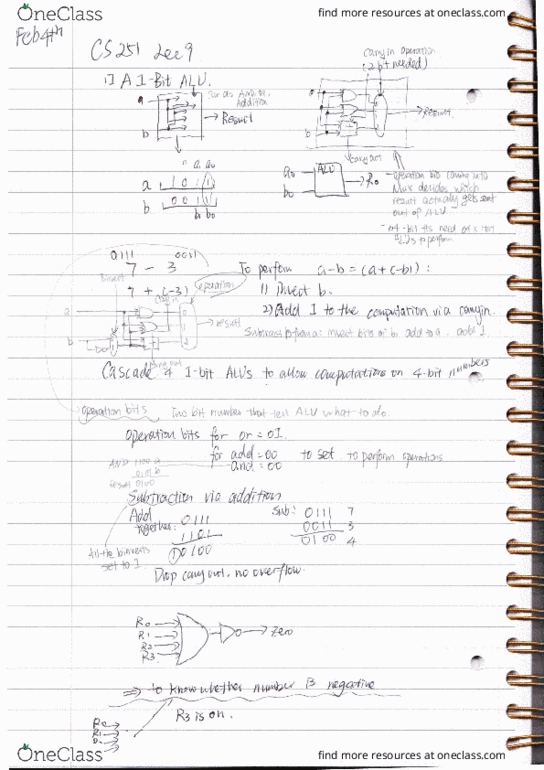 OneClass
find more resources at oneclass.com
Feb 4th
CS 251 Lec 9
1) A 1-Bit ALU.
carry in operation
(2 bit needed)
a
b
→ Result
→ Result
carry out
a 1 0 1 1
b 0 0 1 1
b1 b0
a0
b0
ALU
→ R0
operation bits coming into
Mux decides which
result actually gets sent
out of ALU
0111 0011
7 - 3
7 + (-3)
operation
To perform a-b = (a+(-b)):
1) invert b.
2) Add 1 to the computation via carryin.
Subtract b from a: invert bits of b, add to a, add 1.
Binvert
a
b
result
carry out
Cascade 4 1-bit ALUs to allow computations on 4-bit numbers
operation bits
Two bit number that tell ALU what to do.
operation bits for or = 01
for add = 00 to set to perform operations
and = 00
AND 1100 a
Result 0100
Subtraction via addition
Add together: 0111
1101
1 00100
Sub: 0111 7
0011 3
0100 4
all the binverts
set to 1
Drop carry out, no overflow.
R0
R1
R2
R3
→ zero
⇒ to know whether number is negative
R3 is on.
R0
R1
OneClass
find more resources at oneclass.com